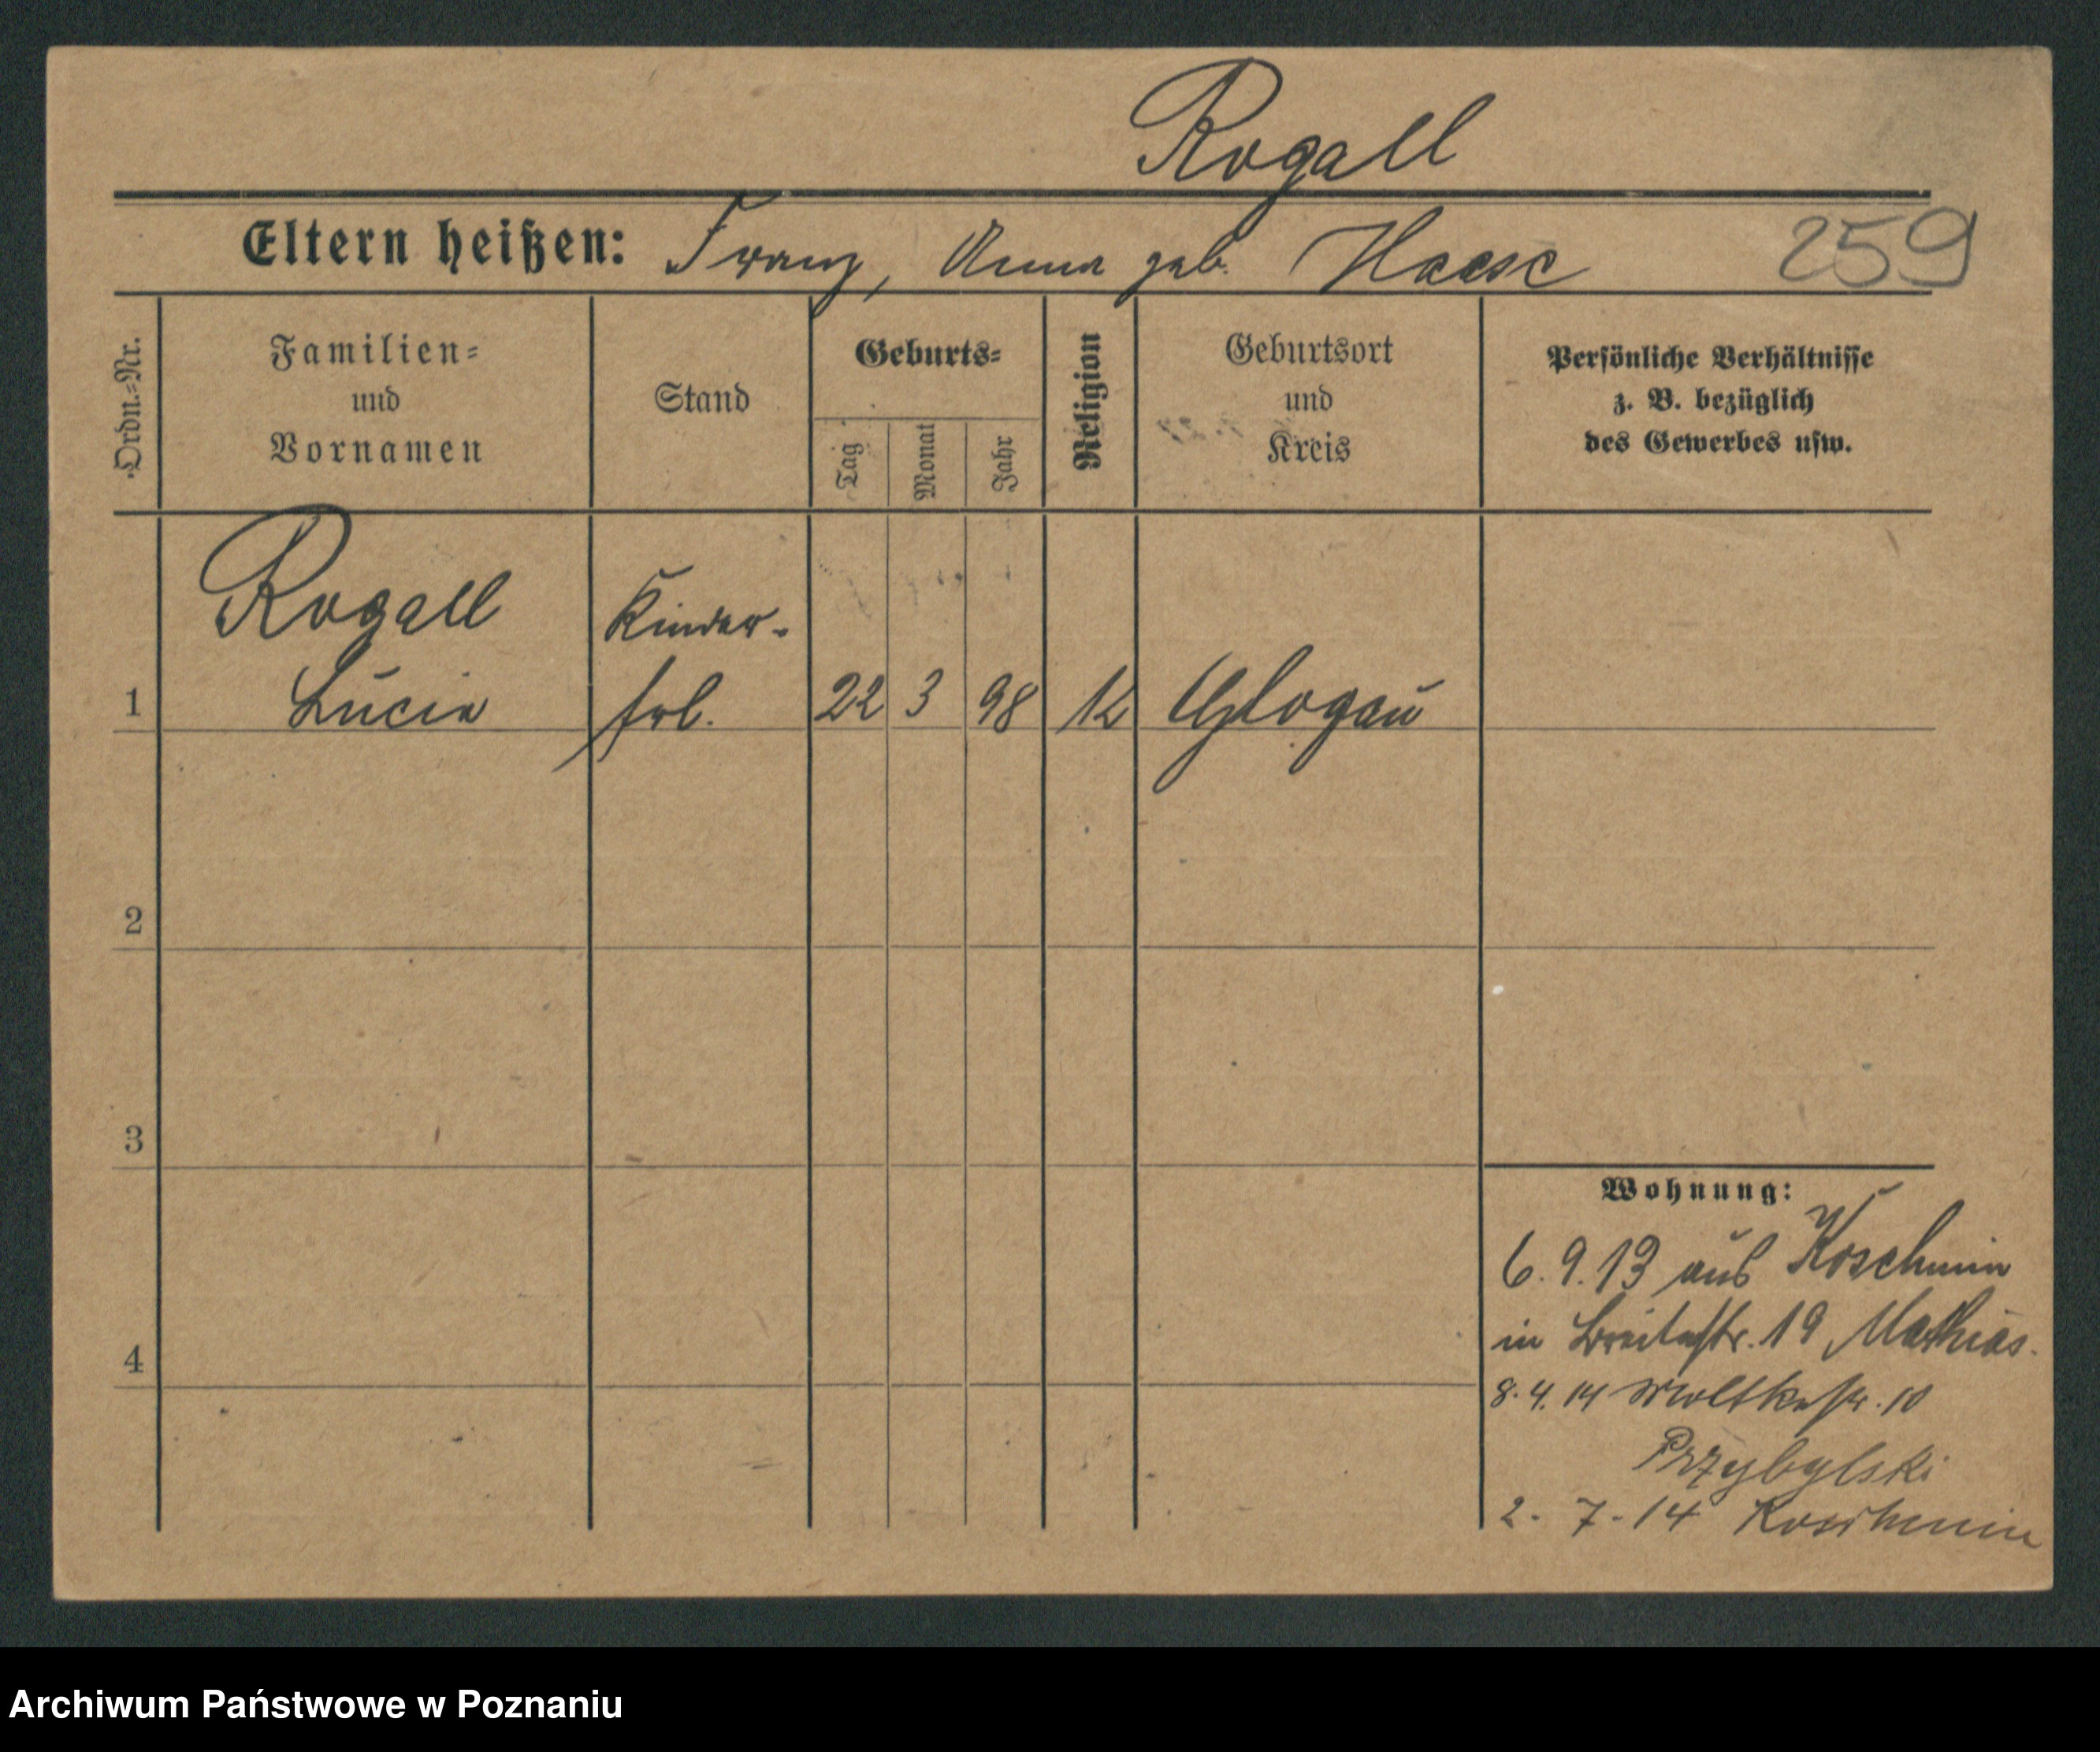 Rogall
Eltern heißen: Franz, Anna geb. Haese
259
Ordn.-Nr.
Familien-
und
Vornamen
Stand
Geburts-
Tag
Monat
Jahr
Religion
Geburtsort
und
Kreis
Persönliche Verhältnisse
z. B. bezüglich
des Gewerbes usw.
Rogall
Kinder-
1 Lucia frl. 22 3 98 k Glogau
2
3
4
Wohnung:
6.9.13 aus Koschmin
in Breitestr. 19 Mathias.
8.4.14 Moltkestr. 10
Przybylski
2.7.14 Koschmin
Archiwum Państwowe w Poznaniu